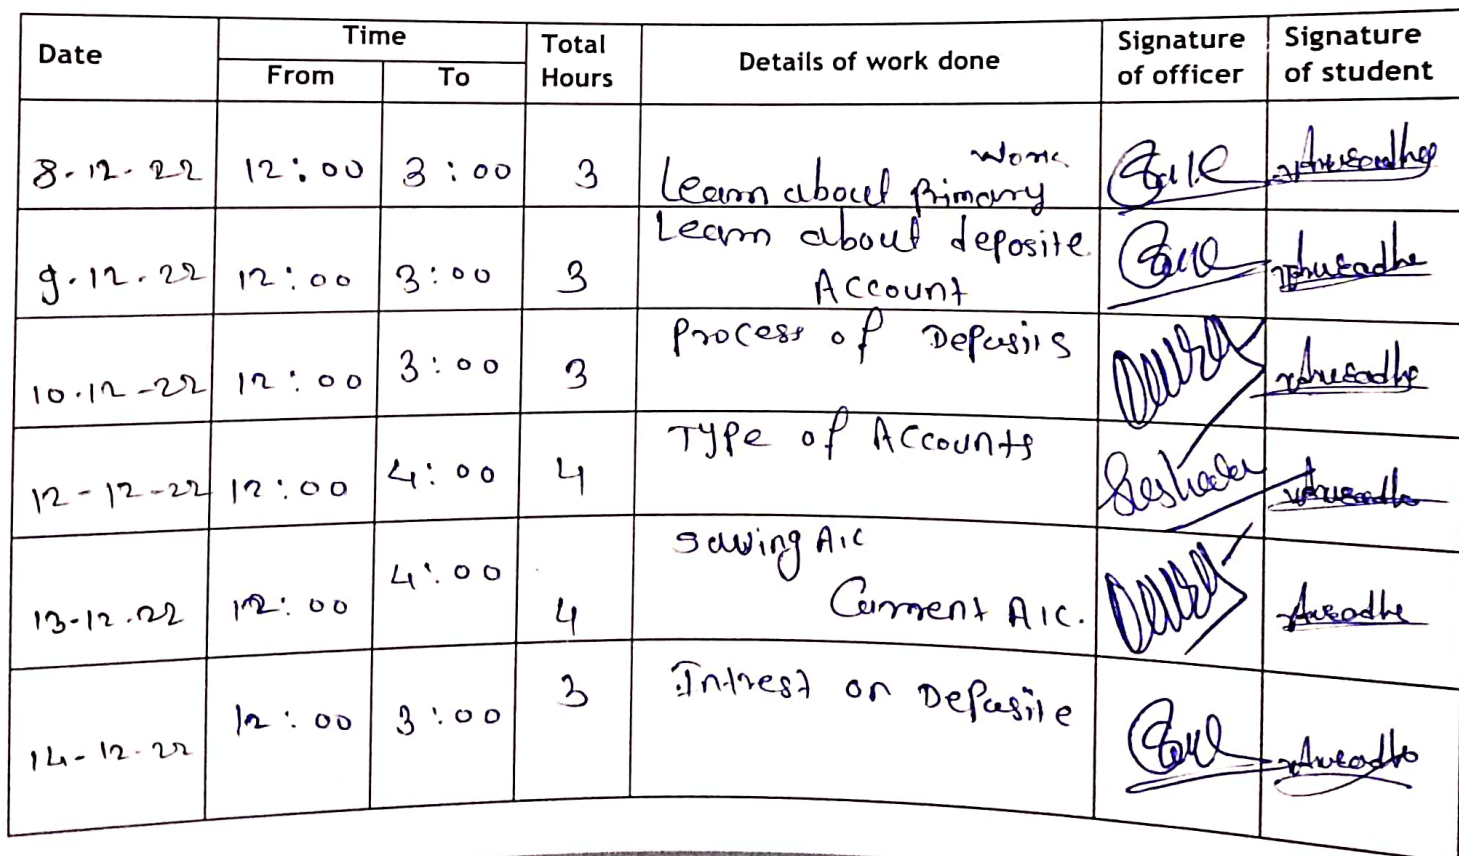 Date Time Total Hours Details of work done Signature of officer Signature of student
From To
8-12-22 12:00 3:00 3 Learn about Primary work
9.12.22 12:00 3:00 3 Learn about deposite Account
10.12-22 12:00 3:00 3 Process of Deposits
12-12-22 12:00 4:00 4 Type of Accounts
13-12.22 12:00 4:00 4 Saving A/c
Current A/C.
14-12-22 12:00 3:00 3 Intrest on Deposite